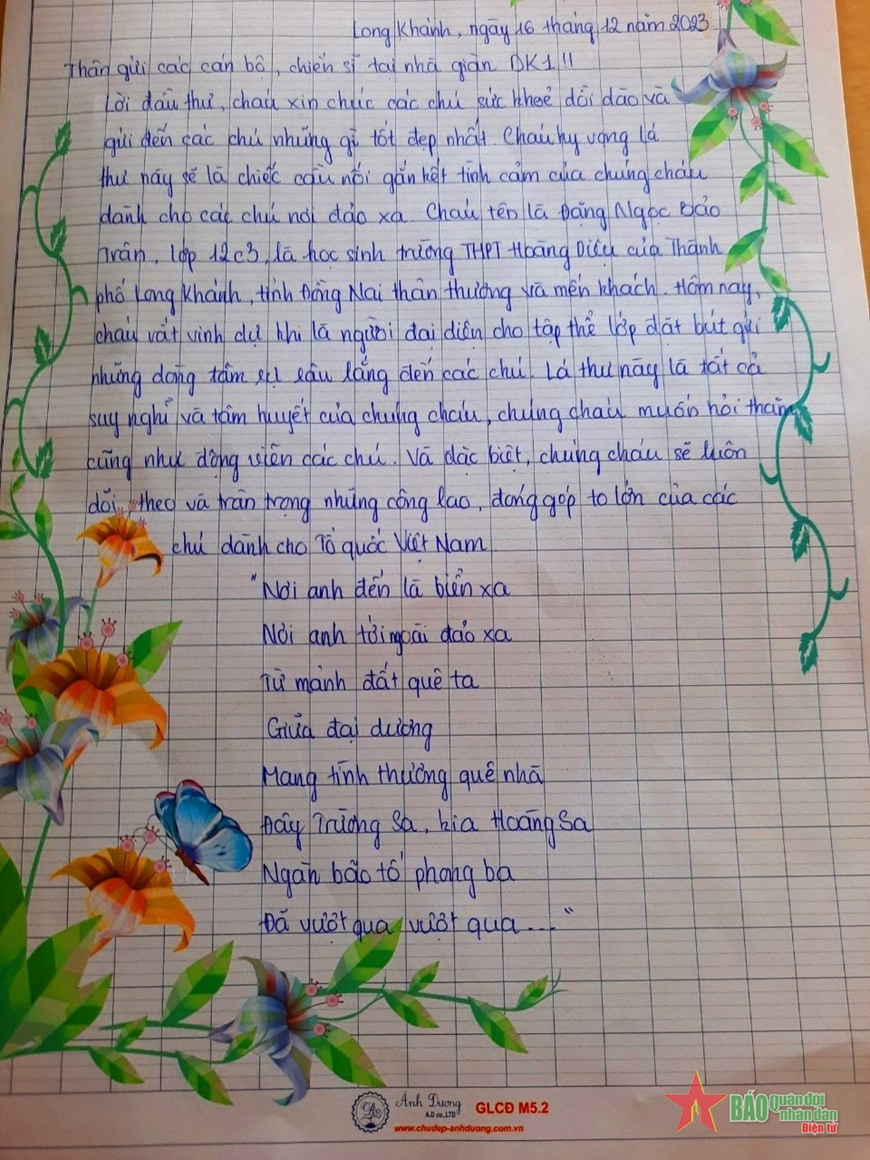 Long Khánh, ngày 16 tháng 12 năm 2023
Thân gửi các cán bộ, chiến sĩ tại nhà giàn DK1!!
Lời đầu thư, cháu xin chúc các chú sức khoẻ dồi dào và
gửi đến các chú những gì tốt đẹp nhất. Cháu hy vọng lá
thư này sẽ là chiếc cầu nối gắn kết tình cảm của chúng cháu
dành cho các chú nơi đảo xa. Cháu tên là Đặng Ngọc Bảo
Trân, lớp 12c3, là học sinh trường THPT Hoàng Diệu của Thành
phố Long Khánh, tỉnh Đồng Nai thân thương và mến khách. Hôm nay,
cháu rất vinh dự khi là người đại diện cho tập thể lớp đặt bút gửi
những dòng tâm sự sâu lắng đến các chú. Lá thư này là tất cả
suy nghĩ và tâm huyết của chúng cháu, chúng cháu muốn hỏi thăm
cũng như động viên các chú. Và đặc biệt, chúng cháu sẽ luôn
dõi theo và trân trọng những công lao, đóng góp to lớn của các
chú dành cho Tổ quốc Việt Nam
"Nơi anh đến là biển xa
Nơi anh tới ngoài đảo xa
Từ mảnh đất quê ta
Giữa đại dương
Mang tình thương quê nhà
Đây Trường Sa, kia Hoàng Sa
Ngàn bão tố phong ba
Đã vượt qua vượt qua...."
Anh Dương
A.D co.,LTD
GLCĐ M5.2
www.chudep-anhduong.com.vn
BÁO quân đội
nhân dân
Điện tử